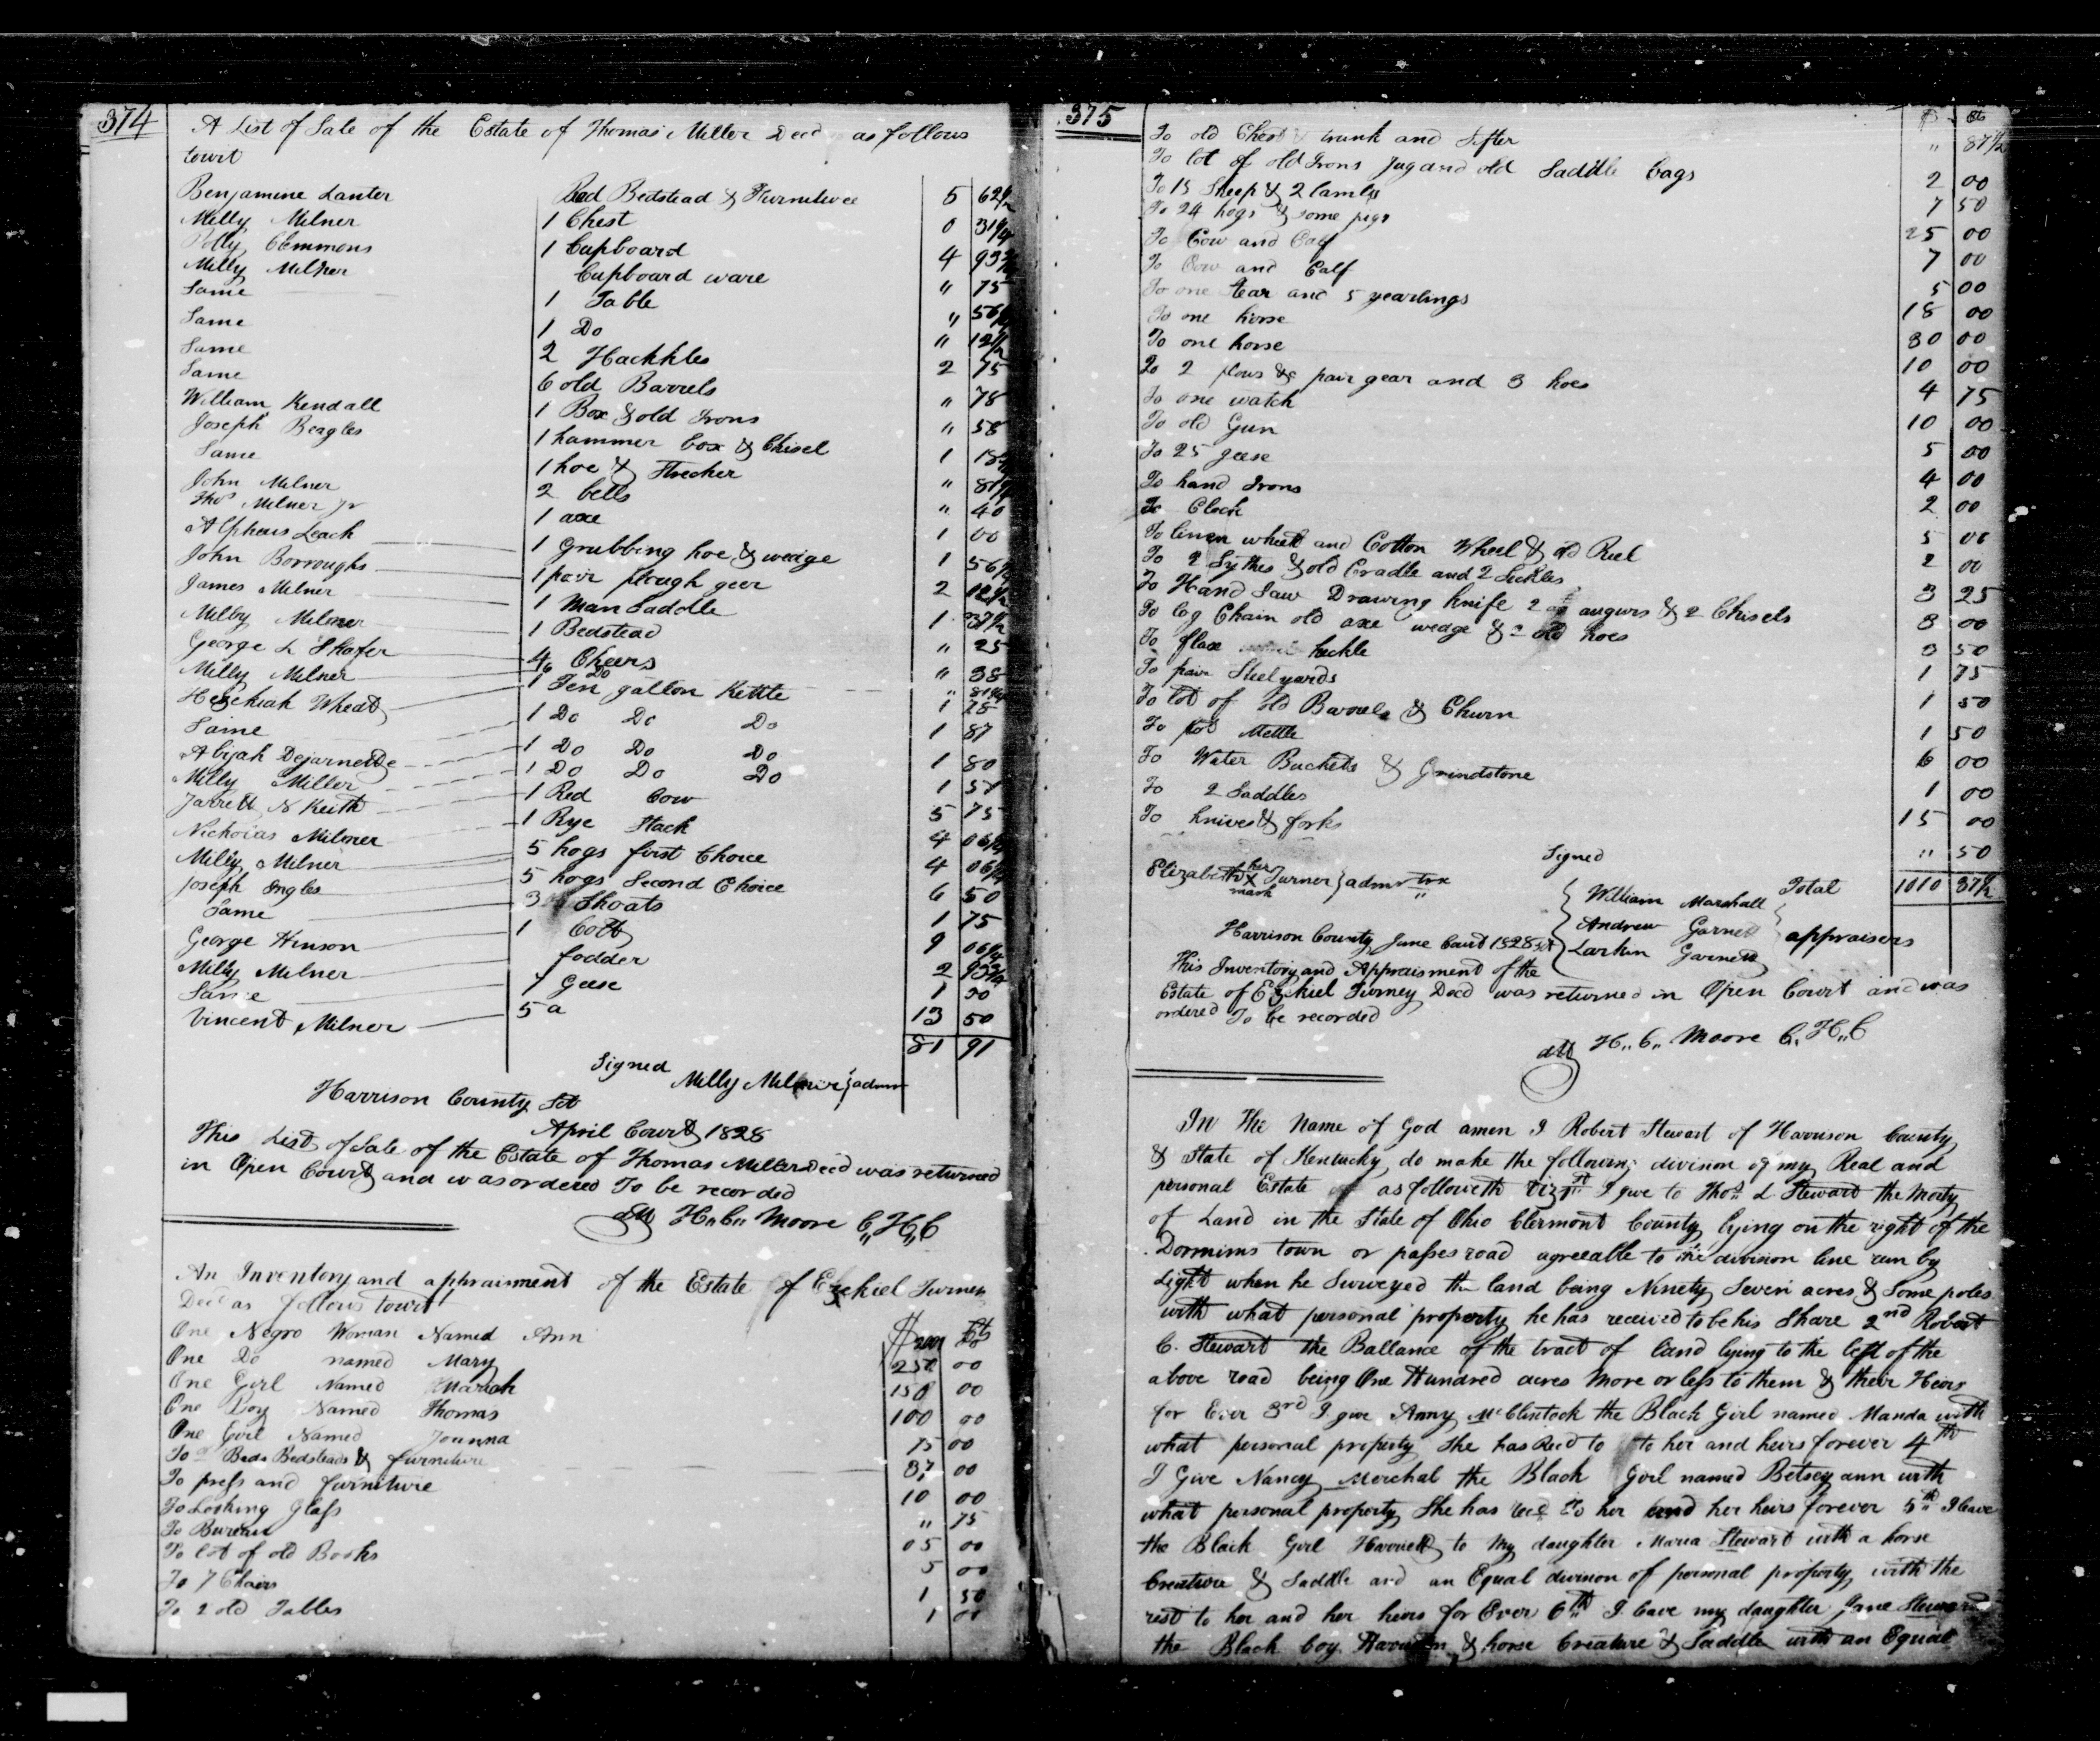 374
A List of Sale of the Estate of Thomas Miller Decd as follows
towit
Benjamine Lanter Bed Bedstead & Furniture 5 62 1/2
Milly Milner 1 Chest 0 31 1/4
Polly Clemmons 1 Cupboard 4 93 3/4
Milly Milner Cupboard ware " 75
Same 1 Table " 56 1/4
Same 1 Do " 12 1/2
Same 2 Hackkles 2 75
Same 6 old Barrels " 78
William Kendall 1 Box & old Irons " 58
Joseph Beagles 1 hammer box & Chisel 1 18 3/4
Same 1 hoe & " 81 1/4
John Milner 2 bells " 40
Thos Milner Jr 1 axe 1 00
Alpheus Leach 1 Grubbing hoe & wedge 1 56 1/4
John Borroughs 1 pair plough geer 2 12 1/2
James Milner 1 Man Saddle 1 37 1/2
Milly Milner 1 Bedstead " 25
George L Shofer 4 Cheers " 38
Milly Milner 6 Do " 81 1/4
Hezekiah Wheat 1 Ten gallon Kettle 1 28
Same 1 Do Do Do 1 87
Abijah Dejarnette 1 Do Do Do 1 80
Milly Miller 1 Do Do Do 1 57
Jarrett N Keith 1 Red Cow 5 75
Nicholas Milner 1 Rye Stack 4 06 1/4
Milly Milner 5 hogs first Choice 4 06 1/4
Joseph Ingles 5 hogs Second Choice 6 50
Same 3 Shoats 1 75
George Hinson 1 Colt 9 06 1/4
Milly Milner fodder 2 93 3/4
Same 7 Geese 1 00
Vincent Milner 5 a 13 50
81 91
Signed
Milly Milner } admr
Harrison County Sct
April Court 1828
This List of Sale of the Estate of Thomas Miller Decd was returned
in Open Court and was ordered To be recorded
att H. C. Moore C,,H,,C
An Inventory and appraisment of the Estate of Ezekiel Turney
Decd as follows towit
$ Cts
One Negro Woman Named Ann 200
One Do named Mary 250 00
One Girl Named Mariah 150 00
One Boy Named Thomas 100 00
One Girl Named Joanna 75 00
To Beds Bedsteads & furniture 37 00
To press and furniture 10 00
To Looking Glass " 75
To Bureau 05 00
To lot of old Books 5 00
To 7 Chairs 1 50
To 2 old Tables 1 00
375
$ Cts
To old Chest trunk and Sifter " 87 1/2
To lot of old Irons Jug and old Saddle bags 2 00
To 15 Sheep & 2 lambs 7 50
To 24 hogs & some pigs 25 00
To Cow and Calf 7 00
To Cow and Calf 5 00
To one Stear and 5 yearlings 18 00
To one horse 30 00
To one horse 10 00
To 2 plows & pair gear and 3 hoes 4 75
To one watch 10 00
To old Gun 5 00
To 25 geese 4 00
To hand Irons 2 00
To Clock 5 00
To linen wheel and Cotton Wheel & old Reel 2 00
To 2 Sythes & old Cradle and 2 Sickles 3 25
To Hand Saw Drawing knife 2 augurs & 2 Chisels 3 00
To log Chain old axe wedge & 2 old hoes 3 50
To flax heckle 1 75
To pair Steelyards 1 50
To lot of old Barrels & Churn 1 50
To pot Mettle 6 00
To Water Buckets & Grindstone 1 00
To 2 Saddles 15 00
To knives & forks " 50
Signed Total 1010 37 1/2
Elizabeth her X mark Turney } admrtrx
William Marshall
Andrew Garnett } appraisers
Larkin Garnett
Harrison County June Court 1828 Sct
This Inventory and Appraisment of the
Estate of Ezekiel Turney Decd was returned in Open Court and was
ordered To be recorded
att H,, C,, Moore C,H,,C
In The Name of God amen I Robert Stewart of Harrison County
& State of Kentucky do make the following division of my Real and
personal Estate as followeth viz 1st I give to Thos L Stewart the Moity
of Land in the State of Ohio Clermont County lying on the right of the
town or passes road agreeable to the division line run by
Light when he Surveyed the land being Ninety Seven acres & Some poles
with what personal property he has received to be his Share 2nd Robert
C. Stewart the Ballance of the tract of land lying to the left of the
above road being One Hundred acres More or less to them & their Heirs
for Ever 3rd I give Anny McClintock the Black Girl named Manda with
what personal property She has Recd to to her and heirs forever 4th
I Give Nancy Merchal the Black Girl named Betsey ann with
what personal property She has recd to her and her heirs forever 5th I leave
the Black Girl Harriett to My daughter Maria Stewart with a horse
Creature & Saddle and an Equal division of personal property with the
rest to her and her heirs for Ever 6th I leave my daughter Jane Stewart
the Black boy & horse Creature & Saddle with an Equal